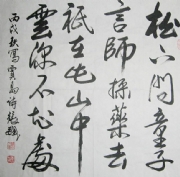 松下问童子
言師採藥去
祇在此山中
雲深不知處
丙戌秋寫賈島詩